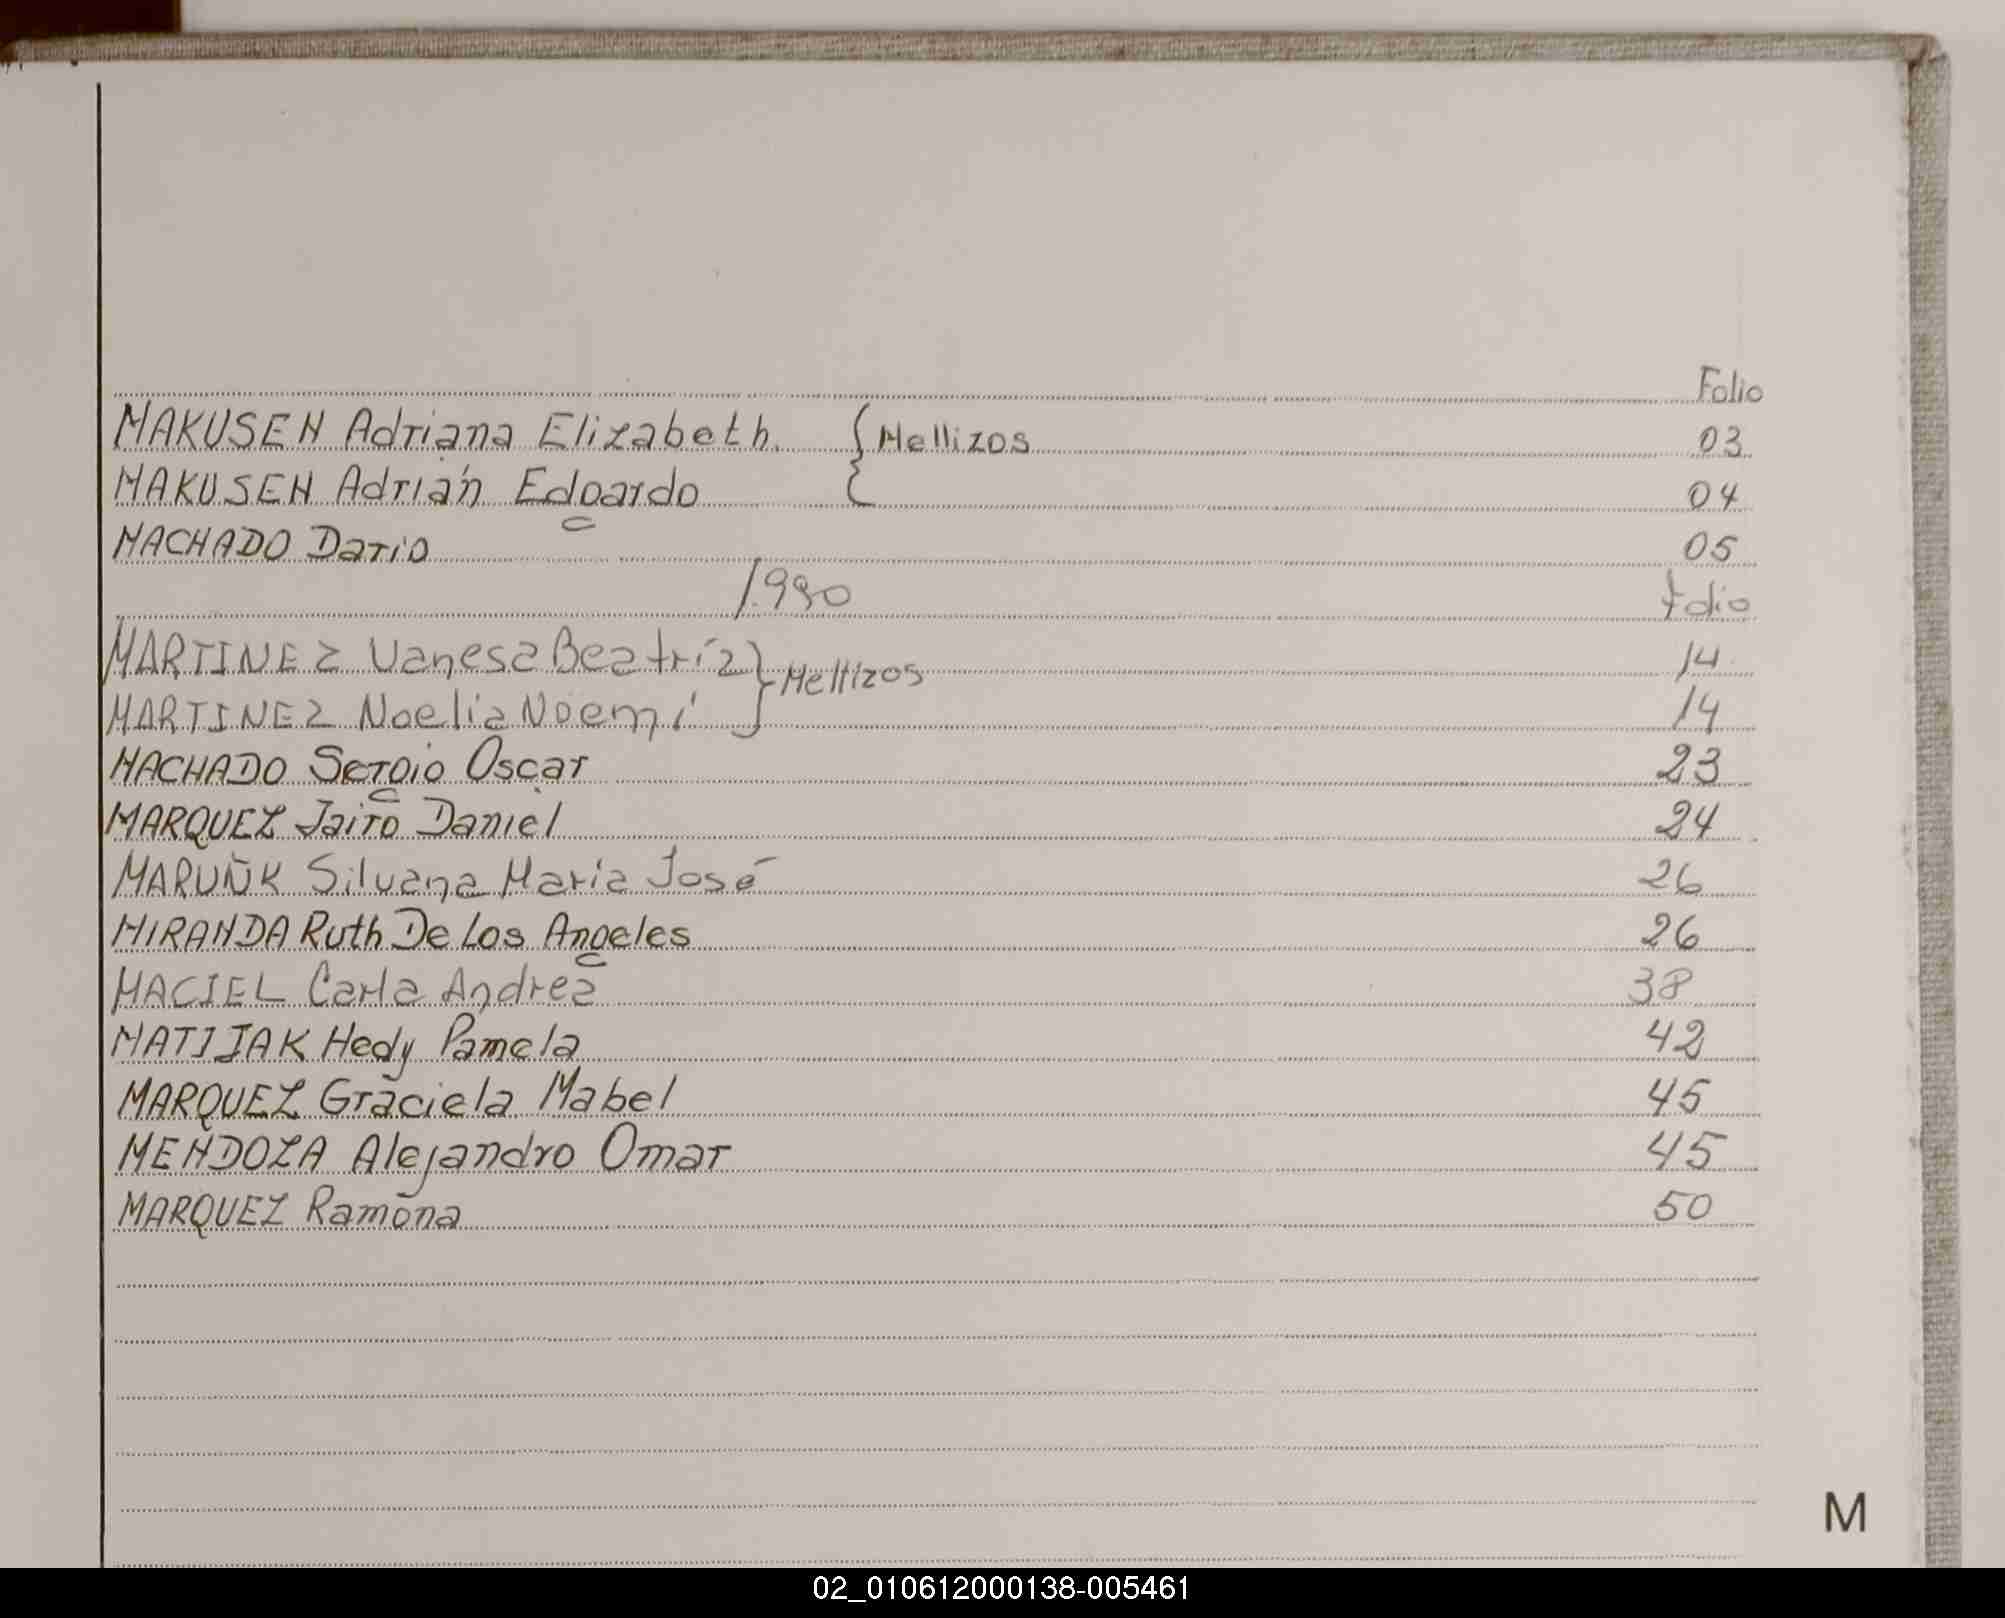 Folio
MAKUSEN Adriana Elizabeth. { Mellizos 03
MAKUSEN Adrián Edoardo 04
MACHADO Dario 05
1.990 folio
MARTINEZ Vanesa Beatríz } Mellizos 14
MARTINEZ Noelia Noemí 14
MACHADO Sergio Oscar 23
MARQUEZ Jairo Daniel 24
MARUÑK Silvana Maria José 26
MIRANDA Ruth De Los Angeles 26
MACIEL Carla Andrea 38
MATIJAK Hedy Pamela 42
MARQUEZ Graciela Mabel 45
MENDOZA Alejandro Omar 45
MARQUEZ Ramona 50
M
02_010612000138-005461